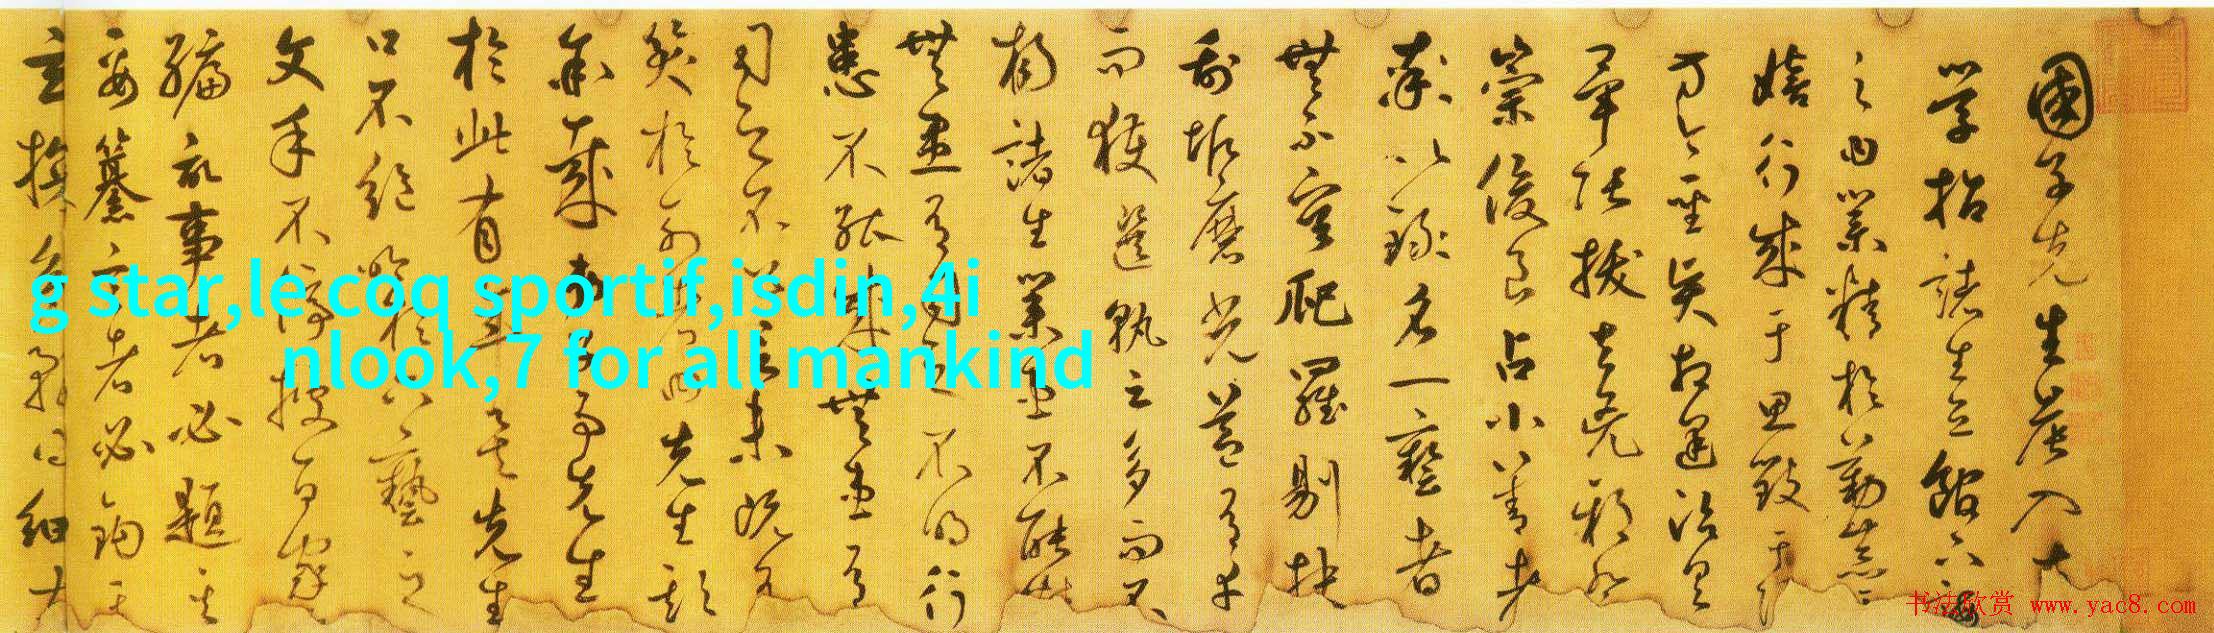 國子先生晨入大
學招諸生立館下誨
之曰業精於勤荒
嬉行成于思毀于
方今聖賢相逢治具
畢張拔去兇邪
崇俊良占小善者
率以錄名一藝者
無不庸爬羅剔抉
刮垢磨光蓋有幸
而獲選孰云多而不
揚諸生業患不能
無患有司之不明行
患不能成無患有
司之不公言未既有
笑於列者曰先生欺
余哉弟子事先生
於此有年矣先生
口不絕吟於六藝之
文手不停披百家
編記事者必題其
要纂言者必鉤其
玄貪多務得細大
g star,le coq sportif,isdin,4i
nlook,7 for all mankind
书法欣赏 www.yac8.com